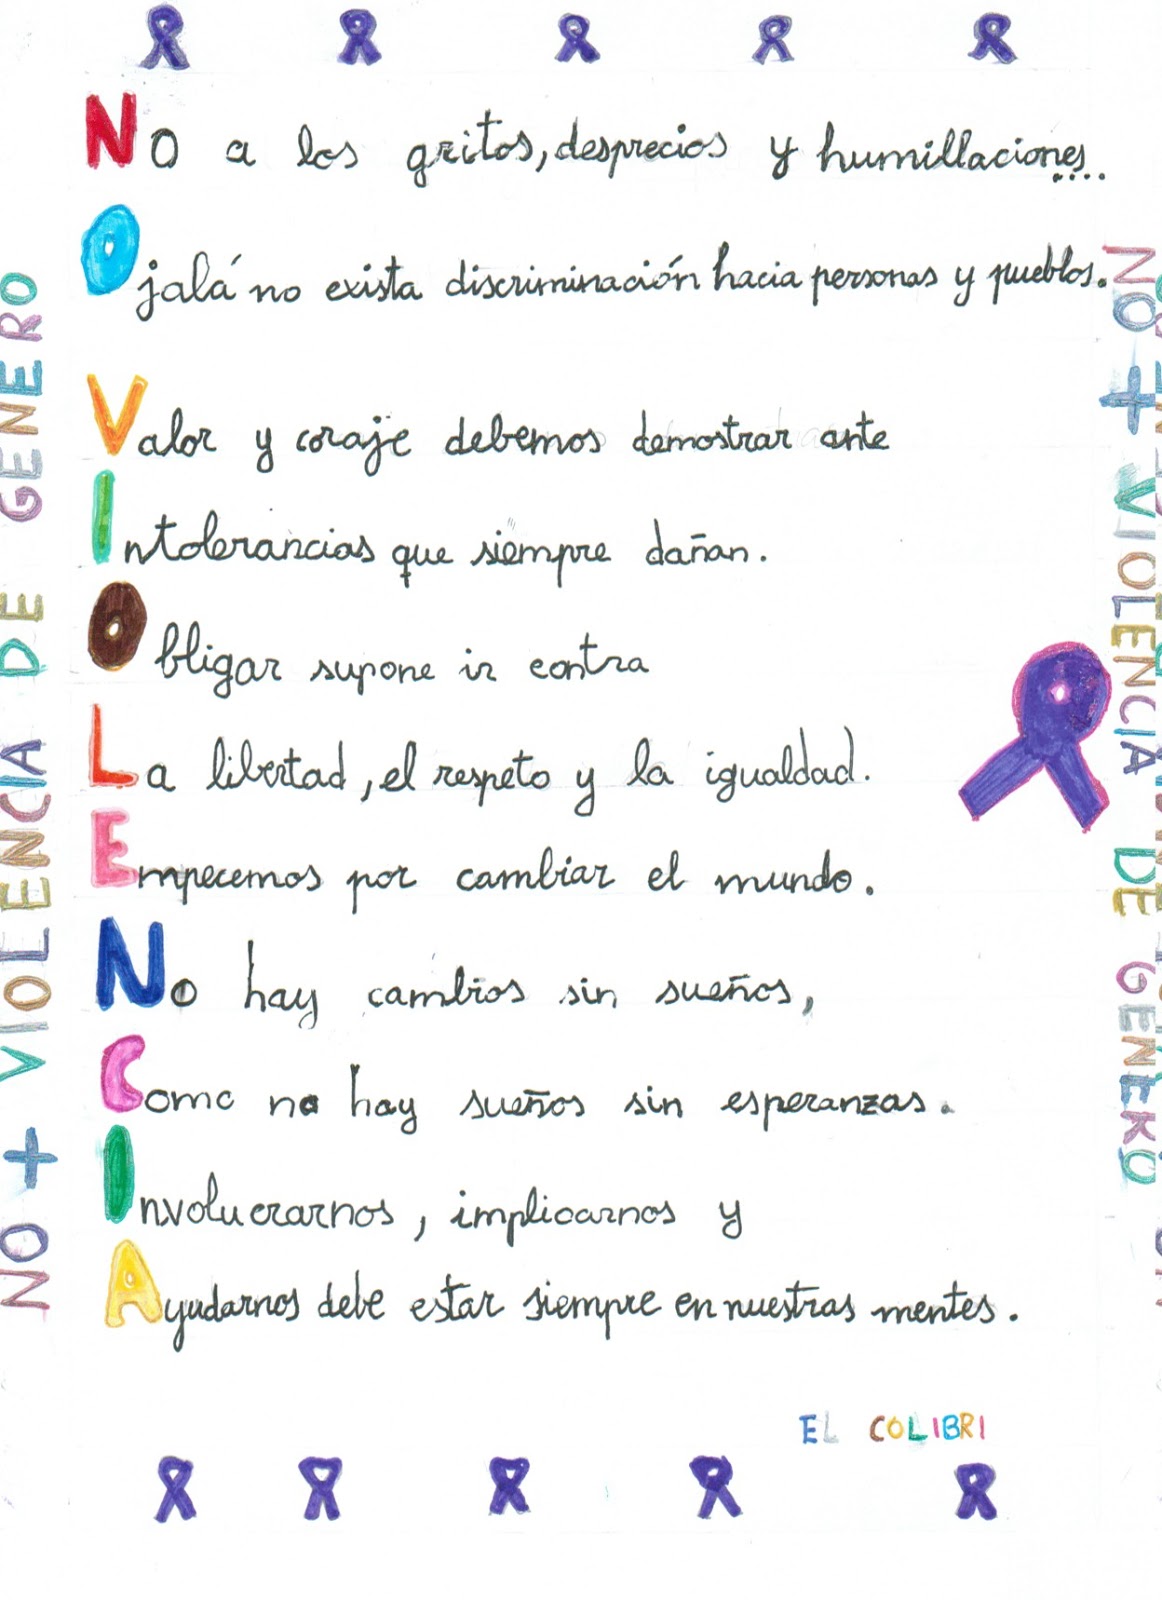 No a los gritos, desprecios y humillaciones....
Ojalá no exista discriminación hacia personas y pueblos.
Valor y coraje debemos demostrar ante
Intolerancias que siempre dañan.
Obligar supone ir contra
La libertad, el respeto y la igualdad.
Empecemos por cambiar el mundo.
No hay cambios sin sueños,
Como no hay sueños sin esperanzas.
Involucrarnos, implicarnos y
Ayudarnos debe estar siempre en nuestras mentes.
EL COLIBRI
NO + VIOLENCIA DE GENERO
NO + VIOLENCIA DE GENERO